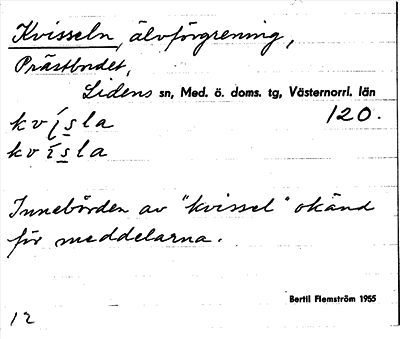 Kvisseln, älvförgrening,
Prästbordet,
Lidens sn, Med. ö. doms. tg, Västernorrl. län
120.
kvísla
kvísla
Innebörden av "kvissel" okänd
för meddelarna.
Bertil Flemström 1955
12